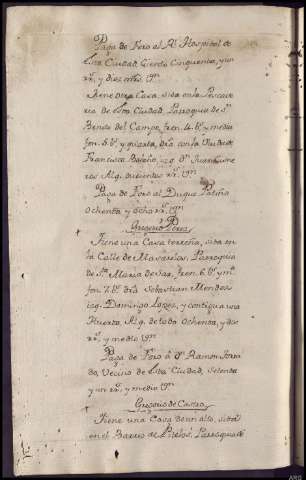 Paga de Foro al Rl. Hospital de
esta Ciudad, Ciento Cinquenta, y un
rrs. y diez mrs. Vn.
Tiene otra Casa, sita en la
ria de esta Ciudad, Parroquia de Sn.
Benito del Campo, fren. 4. bs. y media
fon. 5. bs. y quarta, Dra. con la Viuda de
Francisca izq. Dn. Juan
Alq. ducientos rrs. Vn.
Paga de Foro al Duque Patiño
ochenta y ocho rrs. Vn.
Gregorio Perez
Tiene una Casa terreña, sita en
la Calle de Mazarelos, Parroquia
de Sta. Maria de Sar, fren. 6. bs. y ma.
fon. 7. bs. dra. Sebastian Mendez
izq. Domingo Lopez, y contigua una
Huerta, Alq. de todo ochenta, y dos
rrs. y medio Vn.
Paga de Foro á Dn. Ramon
Vecino de esta Ciudad, setenta
y un rrs. y medio Vn.
Gregorio de Castro
Tiene una Casa de un alto, sita
en el Barrio de Parroquia de